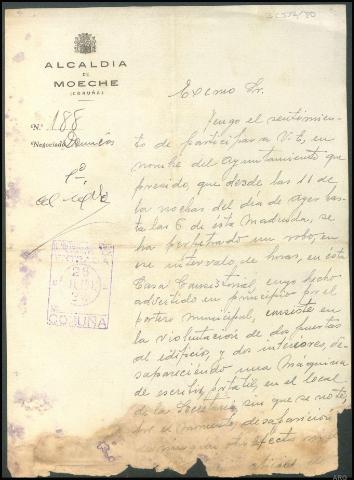 ALCALDIA
DE
MOECHE
(CORUÑA)
Nº 188
Negociado
Excmo Sr.
Tengo el sentimien-
to de participar a V.E, en
nombre del Ayuntamiento que
presido, que desde las 11 de
la noche del dia de ayer has-
ta las 6 de ésta Madrugada, se
ha perpetrado un robo, en
ese intervalo de horas, en ésta
Casa Consistorial, cuyo hecho
advertido en principio por el
portero municipal, consiste en
la violentacion de dos puertas
al edificio, y dos interiores, de-
sapareciendo una Máquina
de escribir, portatil, en el local
de la Secretaría, sin que se note,
por el momento, desaparición
de ningun otro objeto
ENTRADA
28
JUL
CORUÑA
ARG